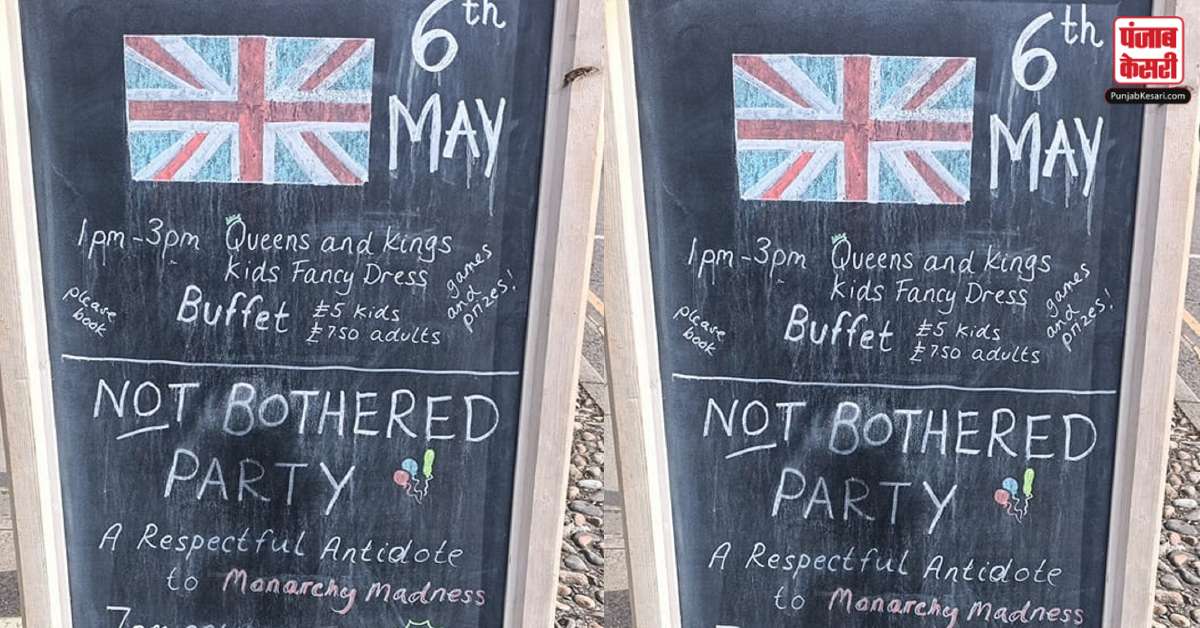 6th
MAY
1pm-3pm Queens and Kings
Kids Fancy Dress
please
book
Buffet £5 kids
£750 adults
games
and
prizes!
NOT BOTHERED
PARTY
A Respectful Antidote
to Monarchy Madness
6th
MAY
1pm-3pm Queens and Kings
Kids Fancy Dress
please
book
Buffet £5 kids
£750 adults
games
and
prizes!
NOT BOTHERED
PARTY
A Respectful Antidote
to Monarchy Madness
पंजाब
केसरी
PunjabKesari.com